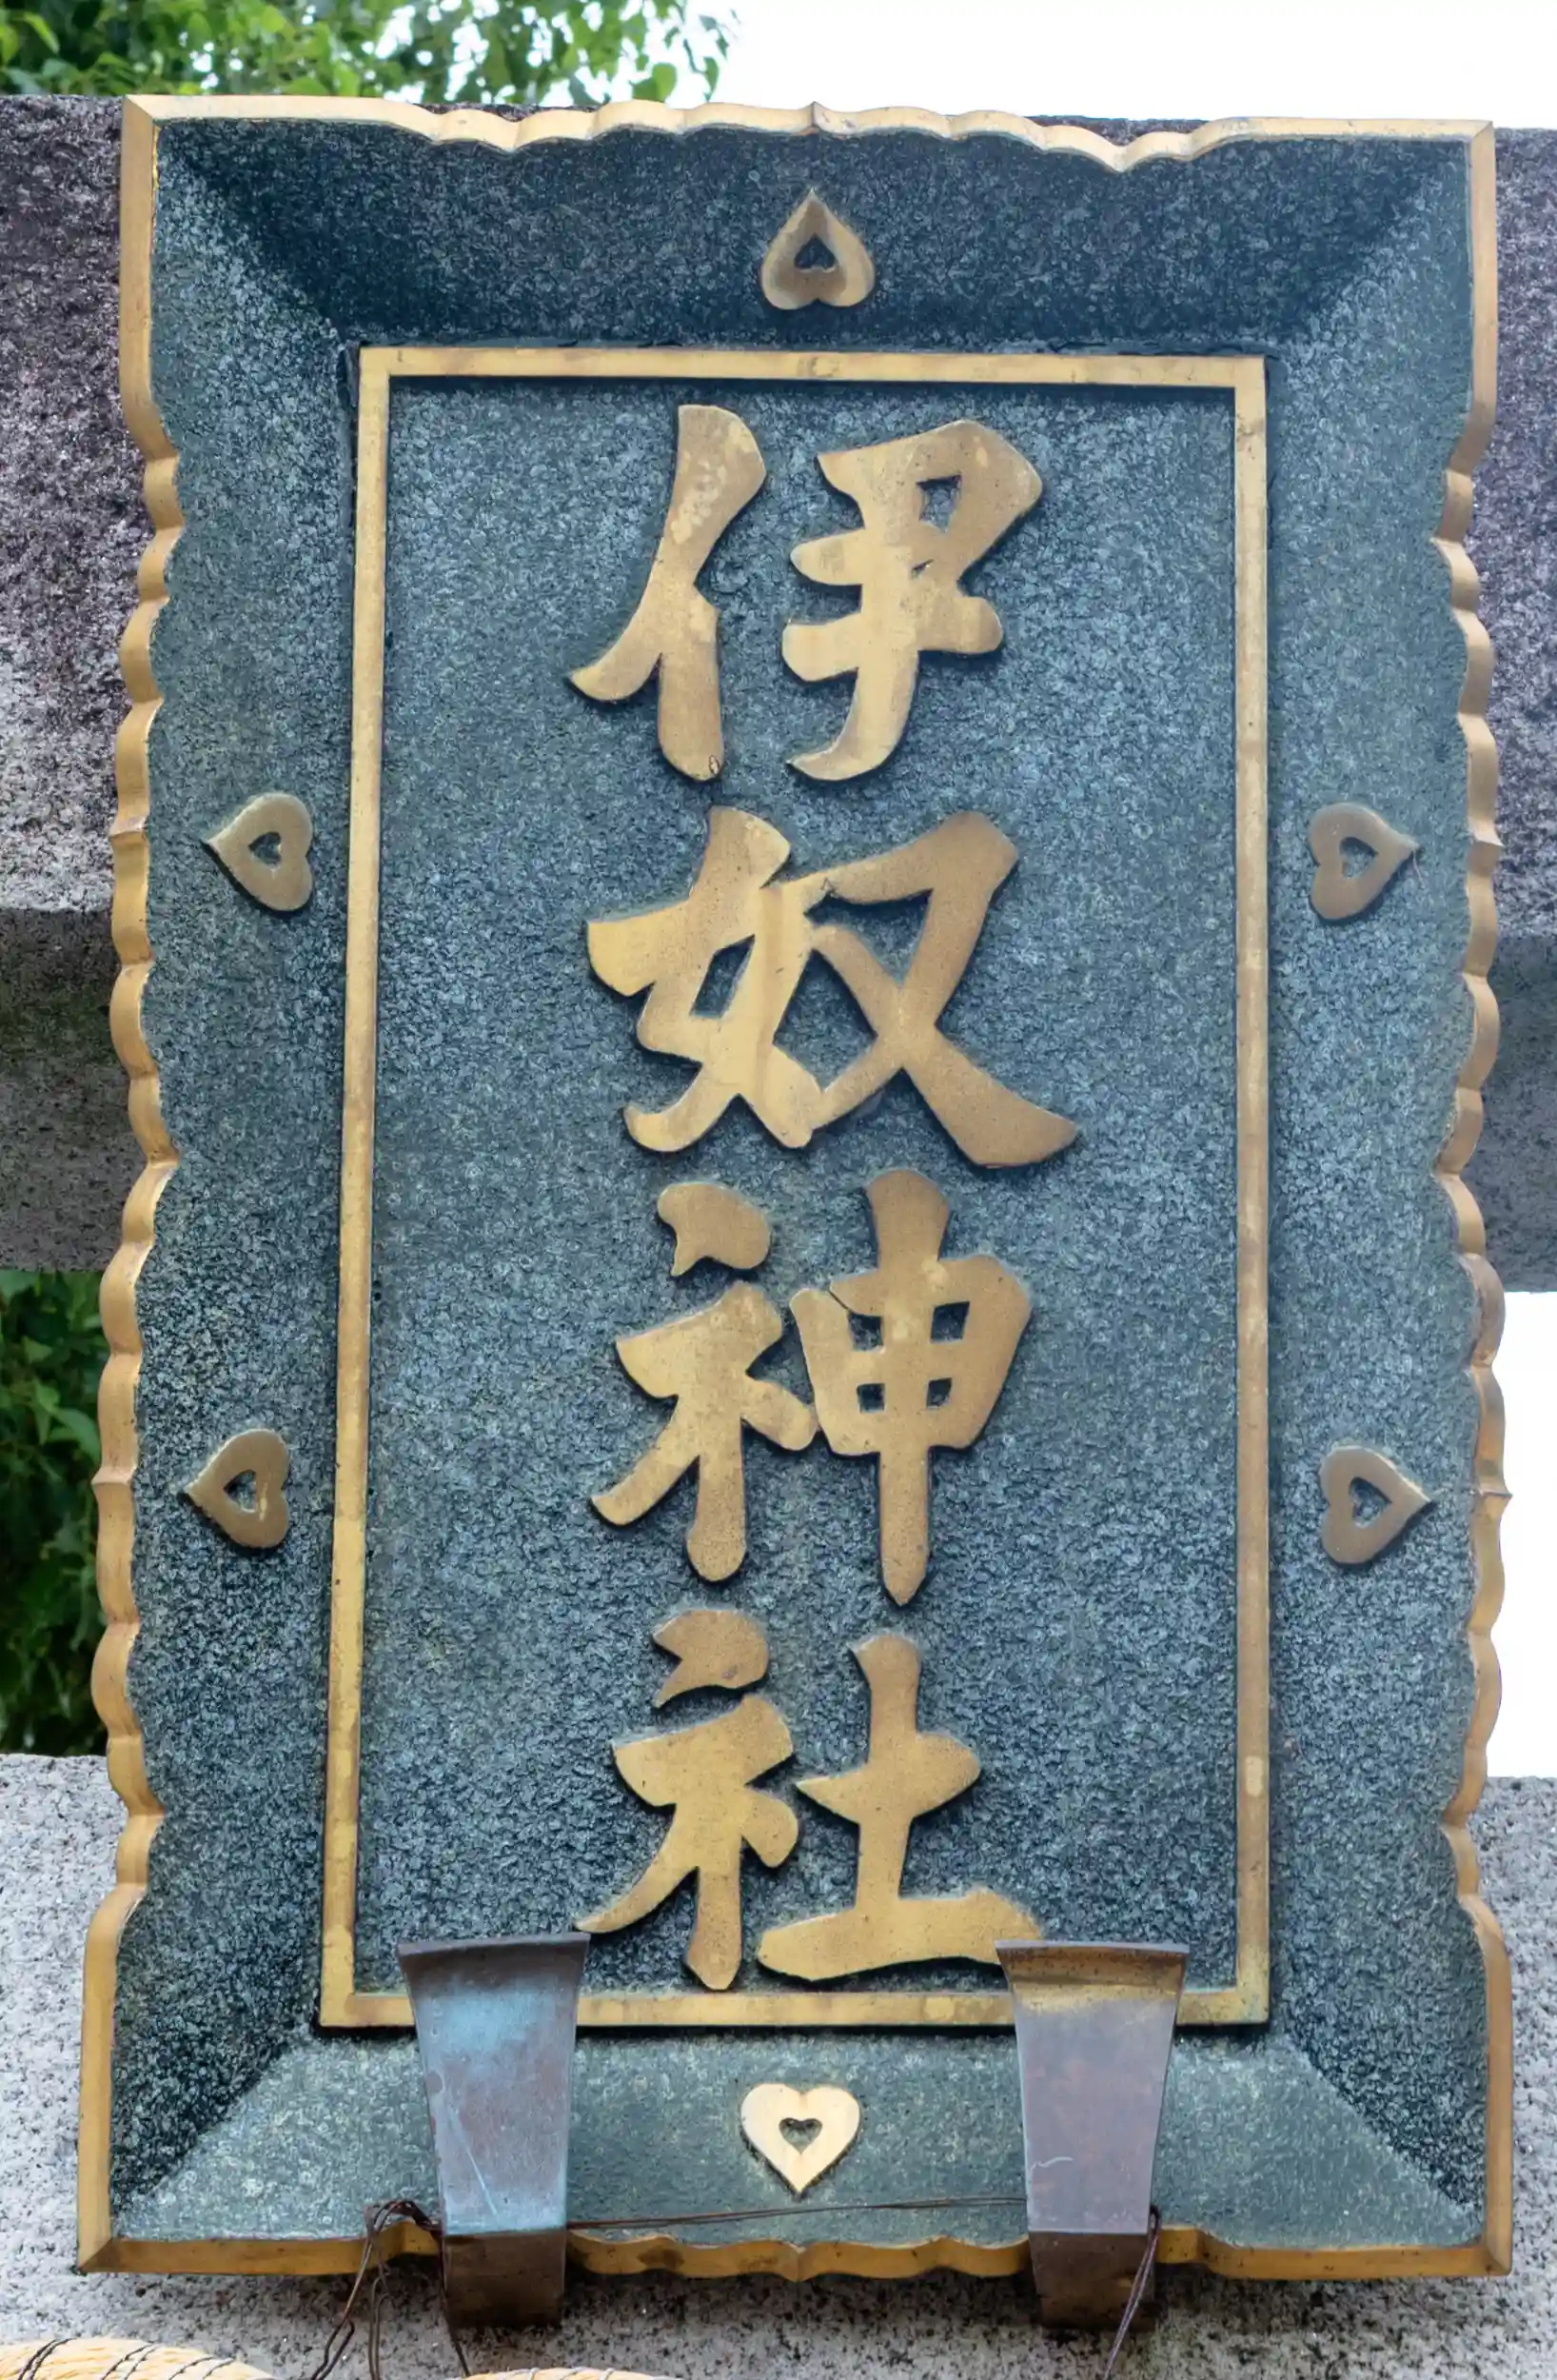 伊奴神社